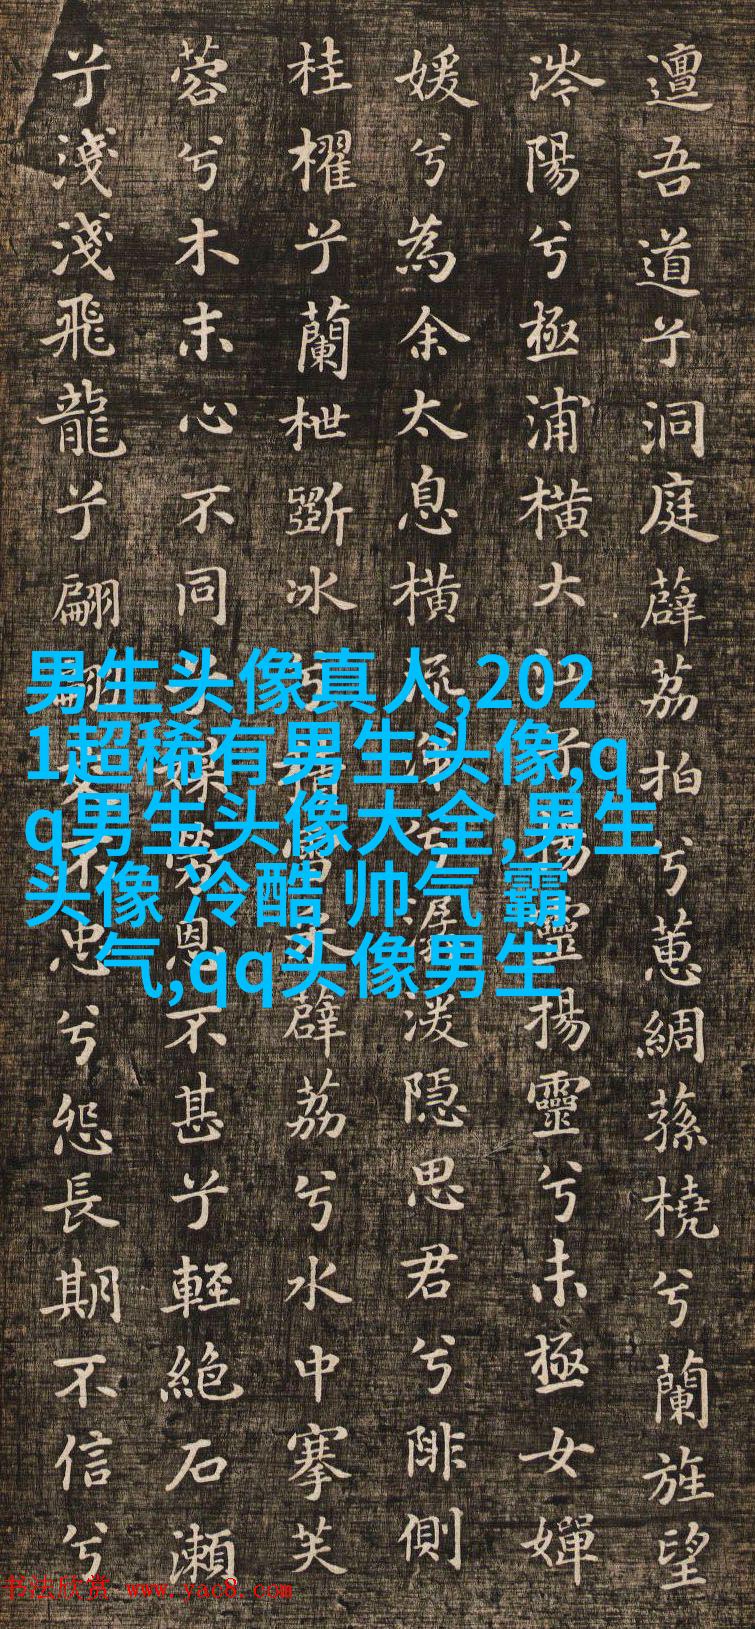 邅吾道兮洞庭薜荔拍兮蕙綢蓀橈兮蘭旌望
涔陽兮極浦橫大江兮揚靈揚靈兮未極女嬋
媛兮為余太息橫流涕兮潺湲隱思君兮陫側
桂櫂兮蘭枻斲冰積雪采薜荔兮水中搴芙
蓉兮木末心不同兮媒勞恩不甚兮輕絕石瀨
兮淺淺飛龍兮翩翩交不忠兮怨長期不信兮
男生头像真人,202
1超稀有男生头像,q
q男生头像大全,男生
头像 冷酷 帅气 霸
气,qq头像男生
书法欣赏 www.yac8.com